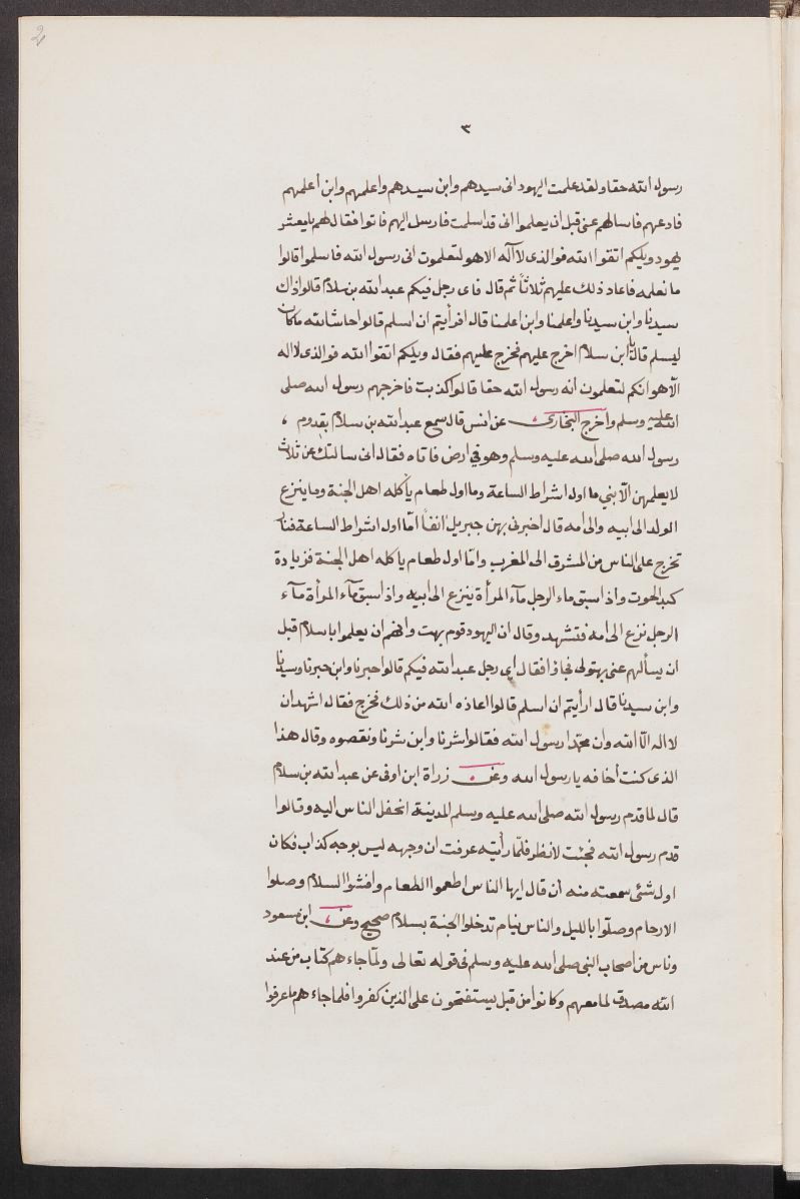 2
٣
رسول الله حقا ولقد علمت اليهود انى سيدهم وابن سيدهم واعلمهم وابن أعلمهم
فادعهم فاسالهم عنى قبل ان يعلموا انى قد اسلمت فارسل اليهم فاتوا فقال لهم يا معشر
يهود ويلكم اتقوا الله فوالذى لا آله الا هو لتعلمون انى رسول الله فاسلموا قالوا
ما نعلمه فاعاد ذلك عليهم ثلاثاً ثم قال فاى رجل فيكم عبد الله بن سلام قالوا ذاك
سيدنا وابن سيدنا واعلمنا وابن اعلمنا قال افرأيتم ان اسلم قالوا حاشا لله ما كان
ليسلم قال يا ابن سلام اخرج عليهم فخرج عليهم فقال ويلكم اتقوا الله فوالذى لا اله
الا هو انكم لتعلمون أنه رسول الله حقا قالوا كذبت فاخرجهم رسول الله صلى
الله عليه وسلم وأخرج البخارى عن انس قال سمع عبد الله بن سلام بقدوم
رسول الله صلى الله عليه وسلم وهو في ارض فاتاه فقال انى سائلتك عن ثلاث
لا يعلمهن الا نبي ما اول اشراط الساعة وما اول طعام يأكله اهل الجنة وما ينزع
الولد الى ابيه والى امه قال اخبرنى بهن جبريل انفاً امّا اول اشراط الساعة فنار
تخرج على الناس من المشرق الى المغرب وامّا اول طعام ياكله اهل الجنة فزيادة
كبد الحوت واذا سبق ماء الرجل مآء المرأة ينزع الى ابيه واذا سبق مآء المرأة مآء
الرجل نزع الى امه فتشهد وقال ان اليهود قوم بهت وانهم ان يعلموا باسلام قبل
ان يسألهم عنى بهتونى فجاؤا فقال اى رجل عبد الله فيكم قالوا حبرنا وابن حبرنا وسيدنا
وابن سيدنا قال ارأيتم ان اسلم قالوا اعاذه الله من ذلك فخرج فقال اشهد ان
لا اله الّا الله وان محمّدا رسول الله فقالوا شرنا وابن شرنا ونقصوه وقال هذا
الذى كنت أخافه يا رسول الله وعن زراة ابن اوفى عن عبد الله بن سلام
قال لما قدم رسول الله صلى الله عليه وسلم المدينة انحفل الناس اليه وقالوا
قدم رسول الله فجئت لانظر فلمّا رأيته عرفت ان وجهه ليس بوجه كذاب فكان
اول شئى سمعته منه أن قال ايها الناس اطعموا الطعام وافشوا السلام وصلوا
الارحام وصلّوا بالليل والناس نيام تدخلوا الجنة بسلام صحيح وعن ابن مسعود
وناس من اصحاب النبى صلى الله عليه وسلم فى قوله تعالى ولمّا جاءهم كتاب من عند
الله مصدق لما معهم وكانوا من قبل يستفتحون على الذين كفروا فلما جاءهم ما عرفوا